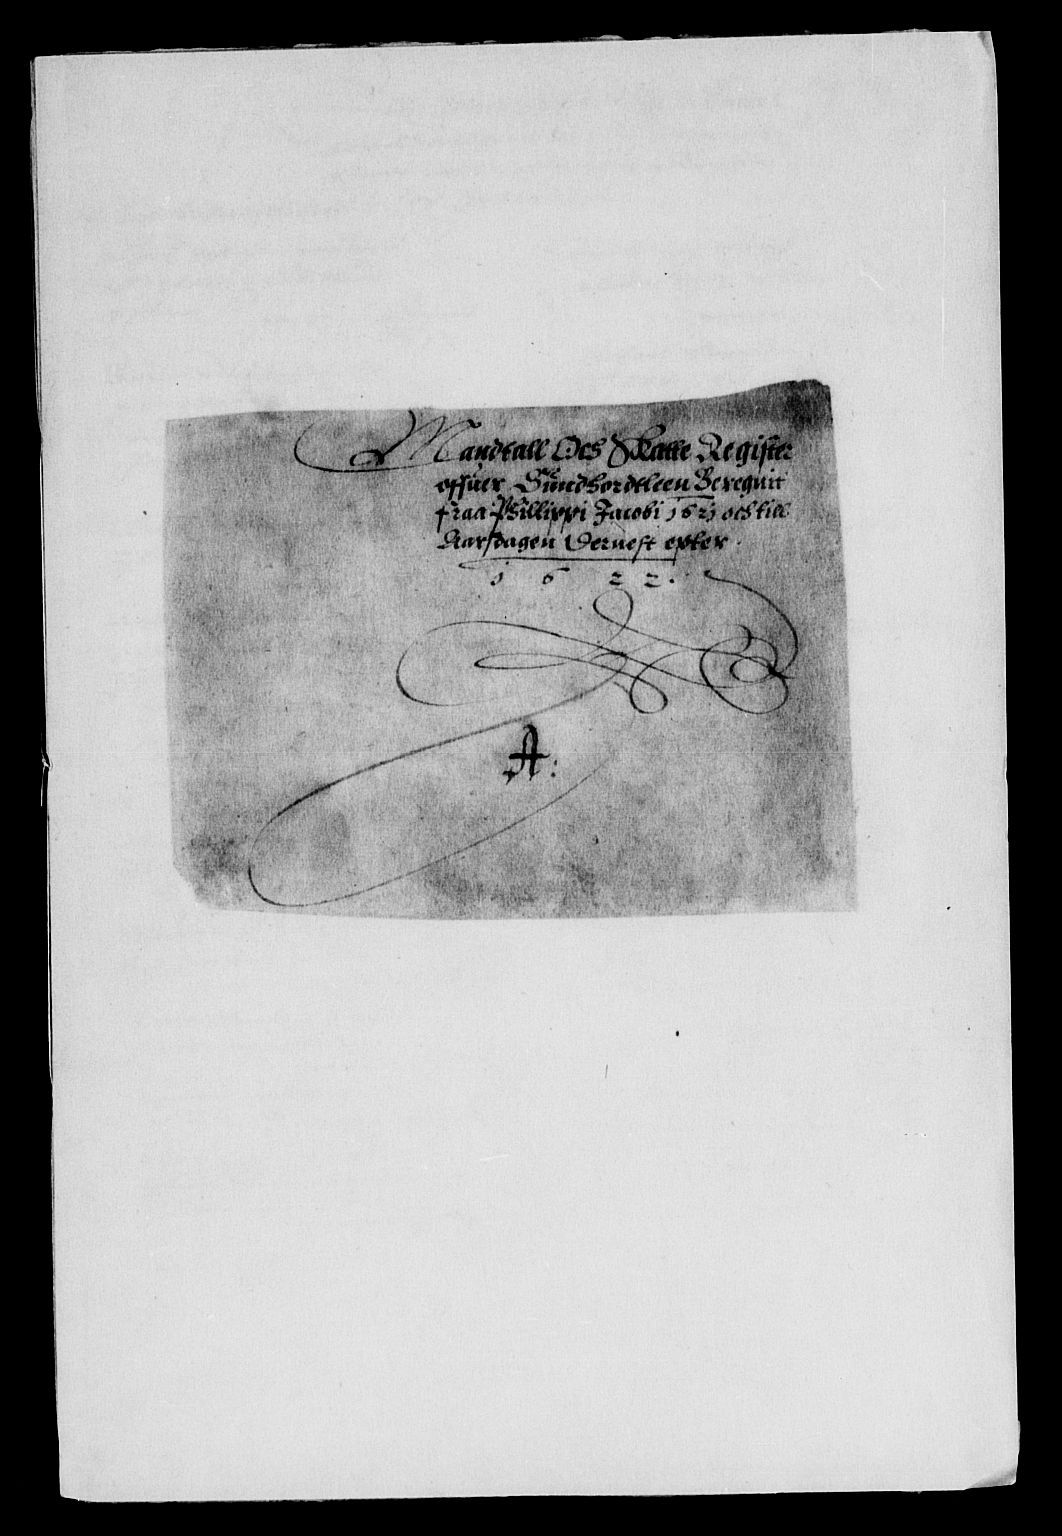 Mandtall Och Skatte Register
offuer Sundhordtleen Beregnit
fraa Phillippi Jacobi 1621 och till
Aarsdagen Dernest epter
1622.
A: